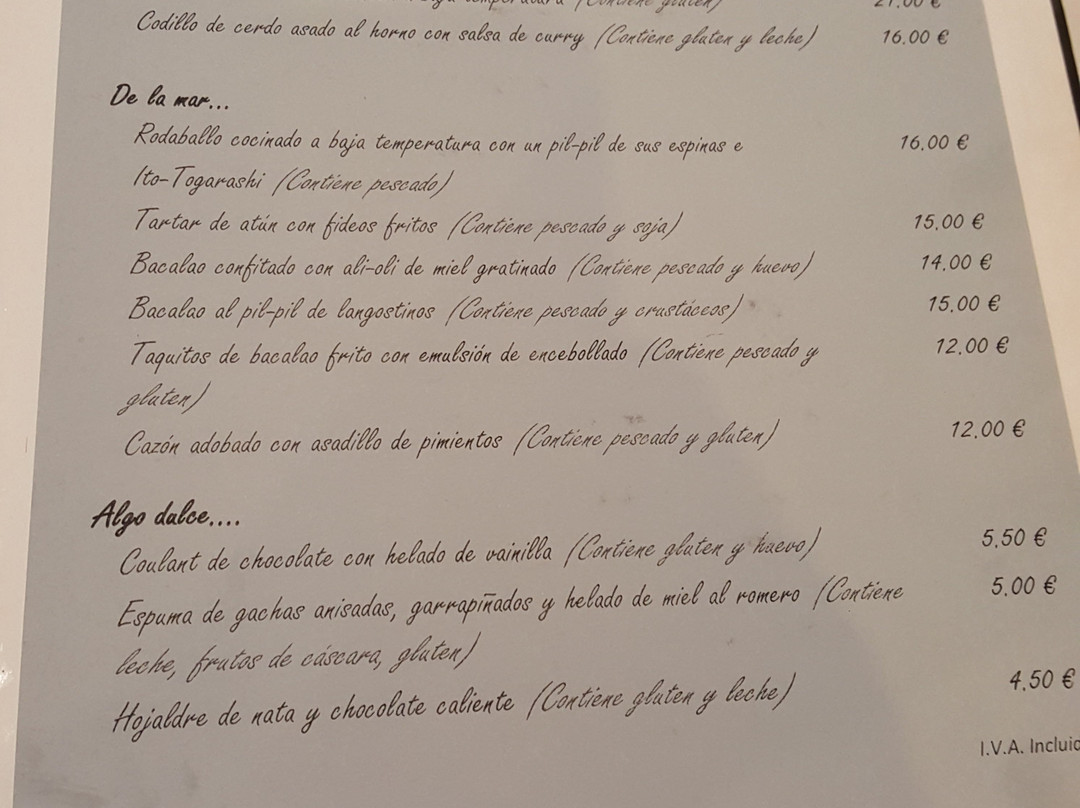 temperatura (Contiene gluten) 21.00 €
Codillo de cerdo asado al horno con salsa de curry (Contiene gluten y leche) 16.00 €
De la mar...
Rodaballo cocinado a baja temperatura con un pil-pil de sus espinas e 16.00 €
Ito-Togarashi (Contiene pescado)
Tartar de atún con fideos fritos (Contiene pescado y soja) 15.00 €
Bacalao confitado con ali-oli de miel gratinado (Contiene pescado y huevo) 14.00 €
Bacalao al pil-pil de langostinos (Contiene pescado y crustáceos) 15.00 €
Taquitos de bacalao frito con emulsión de encebollado (Contiene pescado y 12.00 €
gluten)
Cazón adobado con asadillo de pimientos (Contiene pescado y gluten) 12.00 €
Algo dulce....
Coulant de chocolate con helado de vainilla (Contiene gluten y huevo) 5.50 €
Espuma de gachas anisadas, garrapiñados y helado de miel al romero (Contiene 5.00 €
leche, frutos de cáscara, gluten)
Hojaldre de nata y chocolate caliente (Contiene gluten y leche) 4.50 €
I.V.A. Incluid